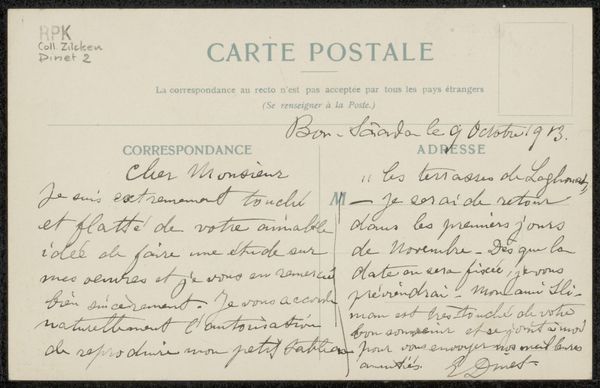 RPK
Coll. Zilcken
Dinet 2
CARTE POSTALE
La correspondance au recto n'est pas acceptée par tous les pays étrangers
(Se renseigner à la Poste.)
Bou-Sâada le 9 Octobre 1913.
CORRESPONDANCE
Cher Monsieur
Je suis extremement touché
et flatté de votre aimable
idée de faire une etude sur
mes oeuvres et je vous en remercie
bien sincèrement. Je vous accorde
naturellement l'autorisation
de reproduire mon petit tableau
ADRESSE
M
"les terrasses de Laghouat"
— Je serai de retour
dans les premiers jours
de Novembre — Dès que la
date en sera fixée, je vous
préviendrai — Mon ami Sli-
man est très touché de votre
bon souvenir et se joint à moi
pour vous envoyer nos meilleures
amitiés. E Dinet